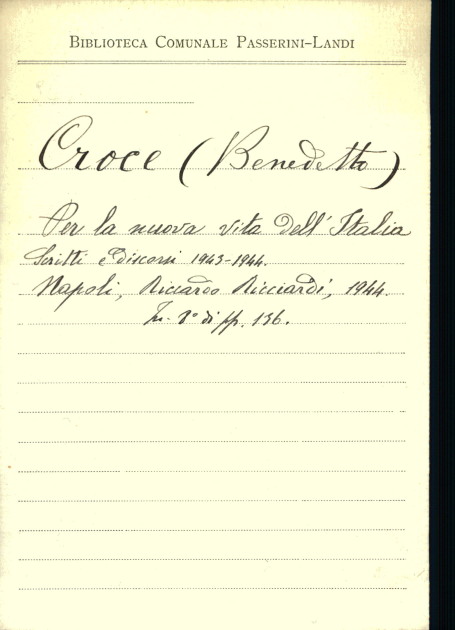 BIBLIOTECA COMUNALE PASSERINI-LANDI
Croce (Benedetto)
Per la nuova vita dell'Italia
Scritti e discorsi 1943-1944.
Napoli, Riccardo Ricciardi, 1944.
In-8° di pp. 136.